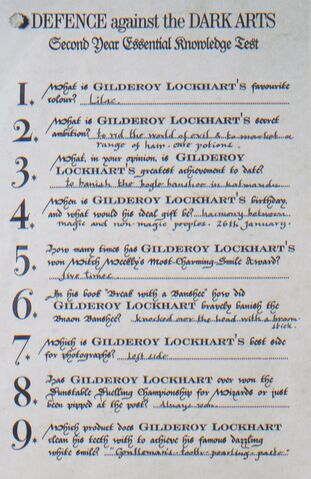 DEFENCE against the DARK ARTS
Second Year Essential Knowledge Test
1. What is GILDEROY LOCKHART'S favourite
colour? Lilac.
2. What is GILDEROY LOCKHART'S secret
ambition? to rid the world of evil & to market a
range of hair-care potions.
3. What, in your opinion, is GILDEROY
LOCKHART'S greatest achievement to date?
to banish the banshee in
4. When is GILDEROY LOCKHART'S birthday,
and what would his ideal gift be? harmony between
magic and non-magic peoples. 26th January.
5. How many times has GILDEROY LOCKHART'S
won Witch Weekly's Most-Charming-Smile Award?
five times
6. In his book "Break with a Banshee" how did
GILDEROY LOCKHART bravely banish the
Banshee? knocked over the head with a broom
stick.
7. Which is GILDEROY LOCKHART'S best side
for photographs? left side
8. Has GILDEROY LOCKHART ever won the
Dunstable Duelling Championship for Wizards or just
been pipped at the post? Always won.
9. Which product does GILDEROY LOCKHART
clean his teeth with to achieve his famous dazzling
white smile? "Gentleman's tooth-pearling-paste"